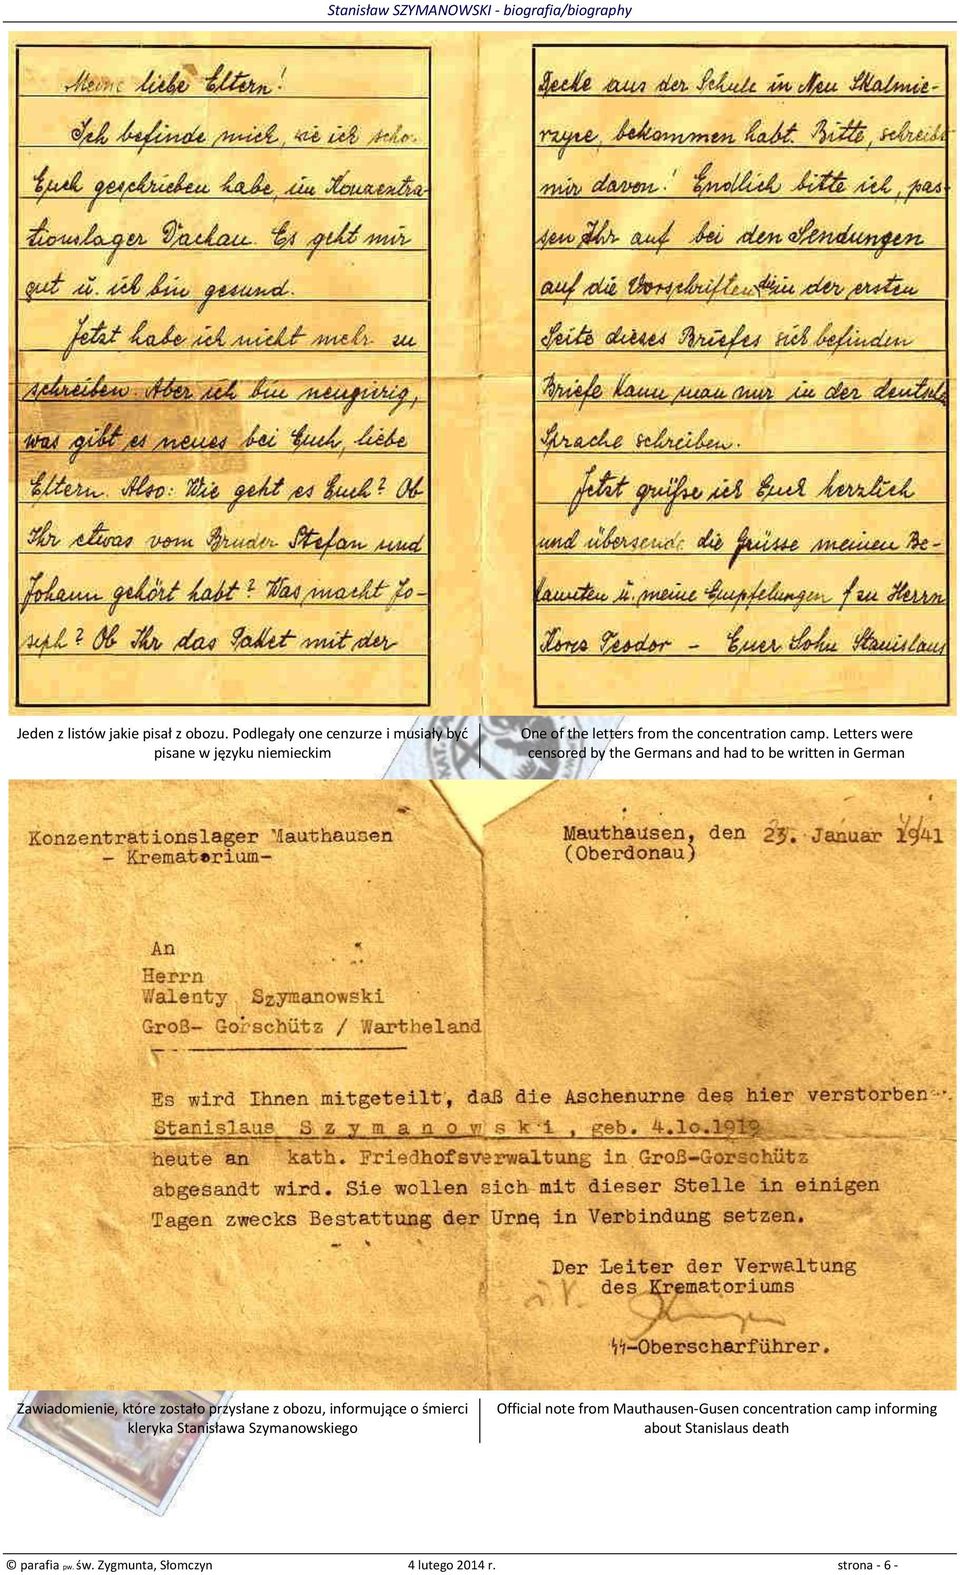 Stanisław SZYMANOWSKI - biografia/biography
Meine liebe Eltern!
Ich befinde mich, wie ich scho.
Euch geschrieben habe, im Konzentra-
tionslager Dachau. Es geht mir
gut u. ich bin gesund.
Jetzt habe ich nicht mehr zu
schreiben. Aber ich bin neugierig,
was gibt es neues bei Euch, liebe
Eltern. Also: Wie geht es Euch? Ob
Ihr etwas vom Bruder Stefan und
Johann gehört habt? Was macht Jo-
seph? Ob Ihr das Paket mit der
Decke aus der Schule in Neu Skalmie-
rzyce, bekommen habt. Bitte, schreibt
mir davon! Endlich bitte ich, pas-
sen Ihr auf bei den Sendungen
auf die Vorschriften die in der ersten
Seite dieses Briefes sich befinden
Briefe kann man nur in der deutsch
Sprache schreiben.
Jetzt grüße ich Euch herzlich
und übersende die Grüsse meinen Be-
kannten u. meine Empfelungen f zu Herrn
Teodor - Euer Sohn Stanislaus
Jeden z listów jakie pisał z obozu. Podlegały one cenzurze i musiały być
pisane w języku niemieckim
One of the letters from the concentration camp. Letters were
censored by the Germans and had to be written in German
Konzentrationslager Mauthausen
- Krematorium-
Mauthausen, den 23. Januar 1941
(Oberdonau)
An
Herrn
Walenty Szymanowski
Groß- Gorschütz / Wartheland
Es wird Ihnen mitgeteilt, daß die Aschenurne des hier verstorben
Stanislaus S z y m a n o w s k i , geb. 4.10.1919
heute an kath. Friedhofsverwaltung in Groß-Gorschütz
abgesandt wird. Sie wollen sich mit dieser Stelle in einigen
Tagen zwecks Bestattung der Urne in Verbindung setzen.
Der Leiter der Verwaltung
des Krematoriums
i.V.
SS-Oberscharführer.
Zawiadomienie, które zostało przysłane z obozu, informujące o śmierci
kleryka Stanisława Szymanowskiego
Official note from Mauthausen-Gusen concentration camp informing
about Stanislaus death
© parafia pw. św. Zygmunta, Słomczyn 4 lutego 2014 r. strona - 6 -